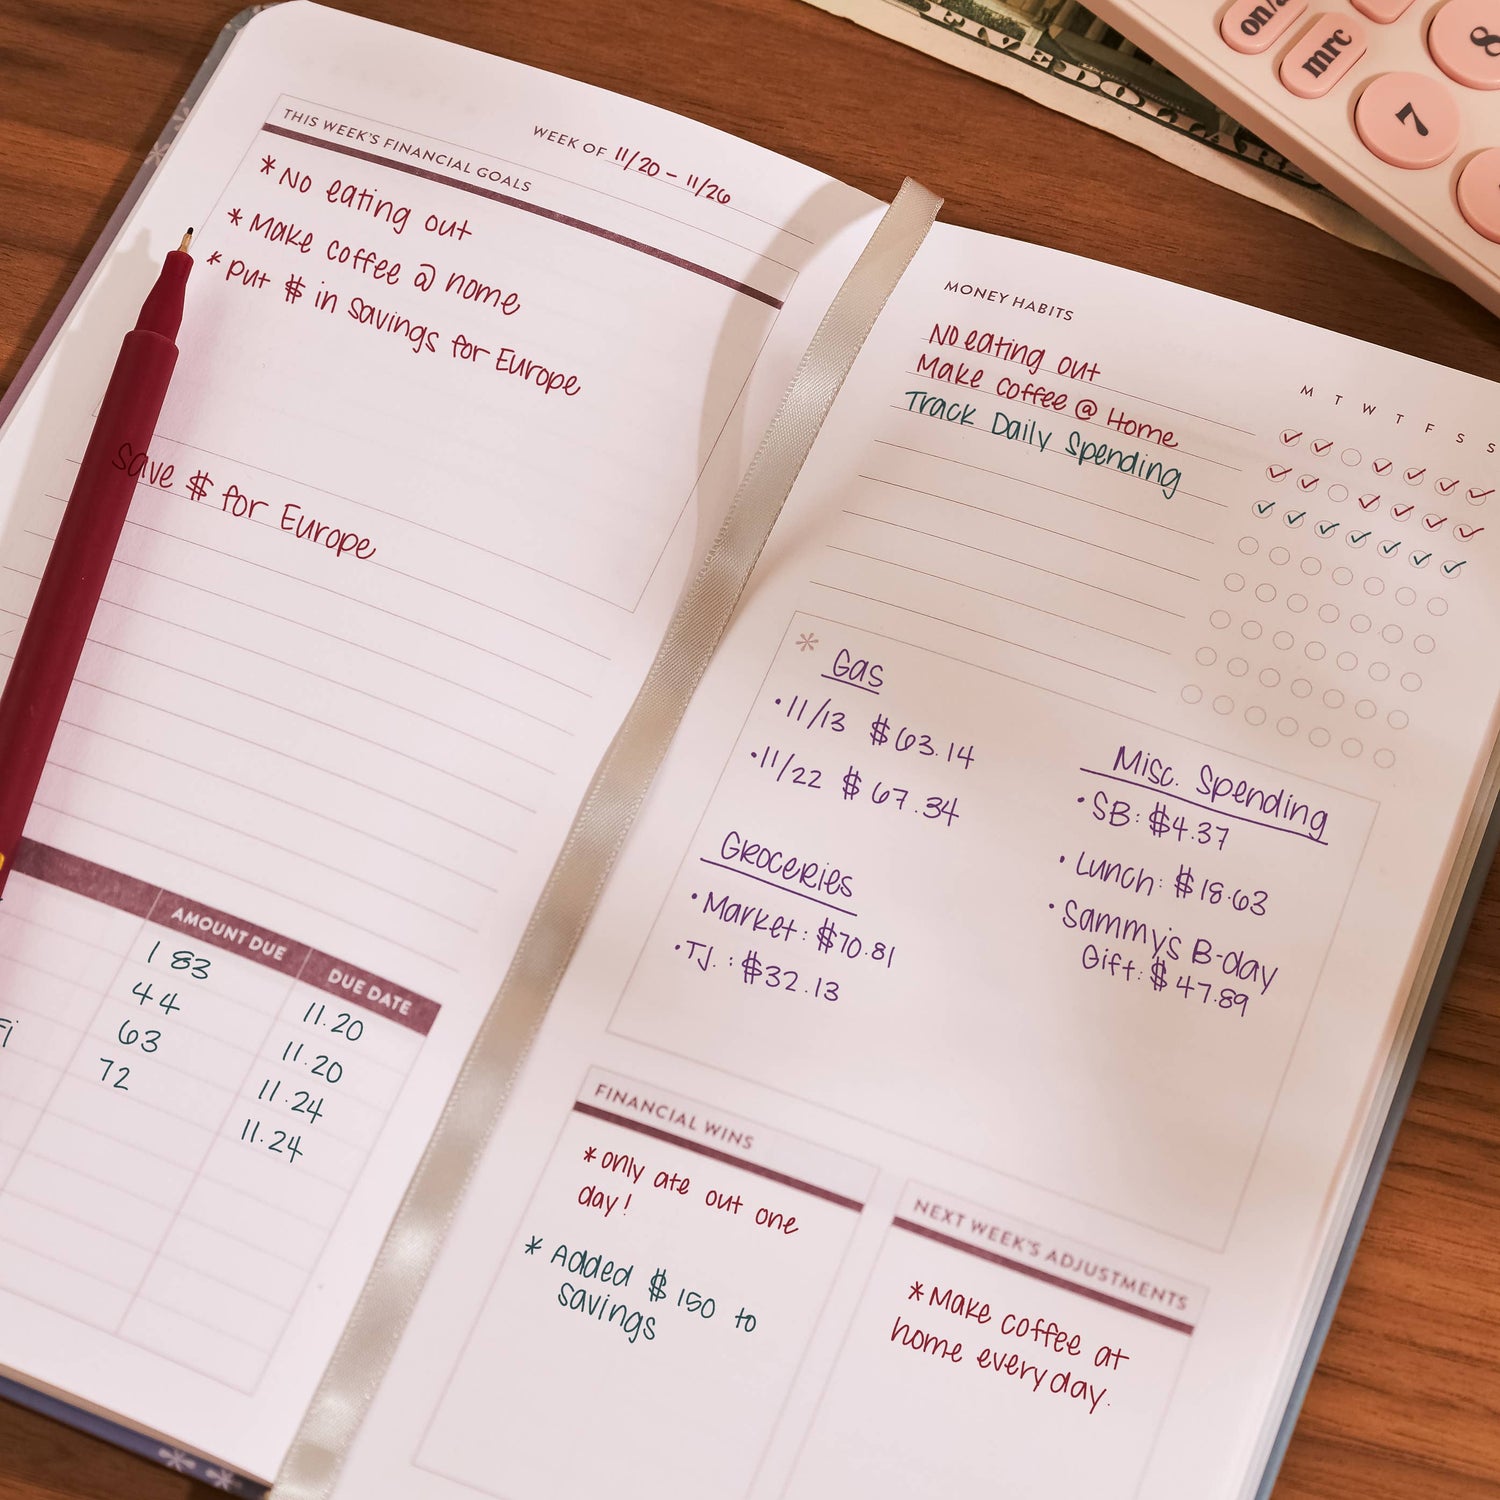 WEEK OF 11/20 - 11/26
THIS WEEK'S FINANCIAL GOALS
* No eating out
* Make coffee @ home
* Put $ in savings for Europe
Save $ for Europe
AMOUNT DUE DUE DATE
183 11.20
44 11.20
Fi 63 11.24
72 11.24
MONEY HABITS
M T W T F S S
No eating out
Make coffee @ Home
Track Daily Spending
* Gas
• 11/13 $63.14
• 11/22 $67.34
Groceries
• Market: $70.81
• T.J.: $32.13
Misc. Spending
• SB: $4.37
• Lunch: $18.63
• Sammy's B-day
Gift: $47.89
FINANCIAL WINS
* only ate out one
day!
* Added $150 to
savings
NEXT WEEK'S ADJUSTMENTS
* Make coffee at
home every day.
FIVE DOLLARS
on/
mrc
8
7